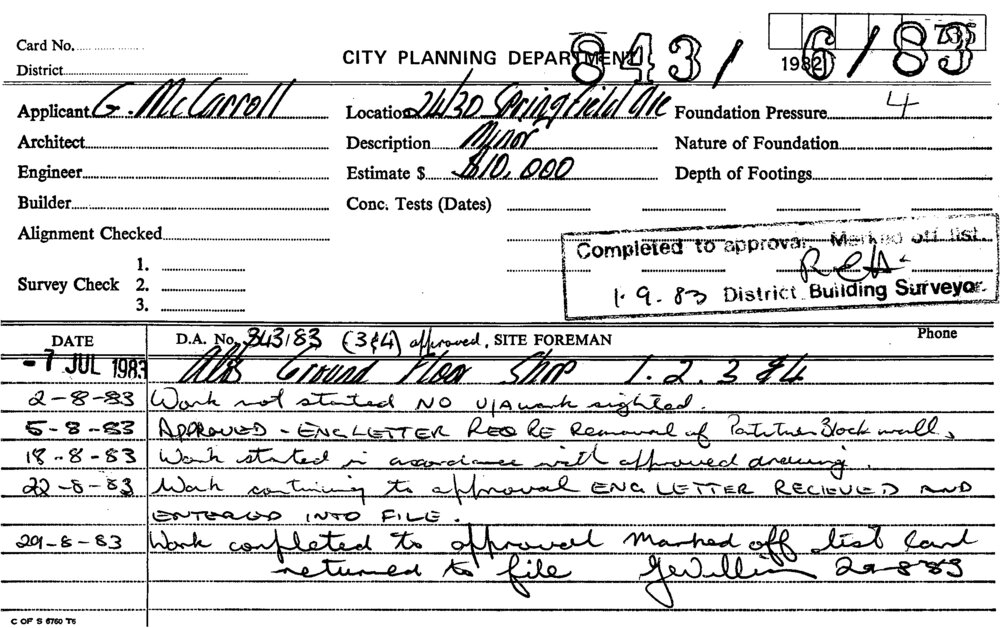 Card No.
District
CITY PLANNING DEPARTMENT
843/6/83
1982
Applicant G. McCarroll
Location 24/30 Springfield Ave
Foundation Pressure
4
Architect
Description Minor
Nature of Foundation
Engineer
Estimate $ $10,000
Depth of Footings
Builder
Conc. Tests (Dates)
Alignment Checked
Completed to approval. Marked off list.
Survey Check
1.
2.
3.
1.9.83 District Building Surveyor.
DATE
D.A. No. 343/83 (3&4) approved, SITE FOREMAN
Phone
-7 JUL 1983 Alts Ground Floor Shop 1.2.3 &4
2-8-83 Work not started NO U/A work sighted.
5-8-83 APPROVED - ENG LETTER REQ RE Removal of Block wall,
18-8-83 Work started in accordance with approved drawing.
22-8-83 Work continuing to approval ENG LETTER RECIEVED AND
ENTERED INTO FILE.
29-8-83 Work completed to approval Marked off list Card
returned to file 29-8-83
C OF S 6760 T6